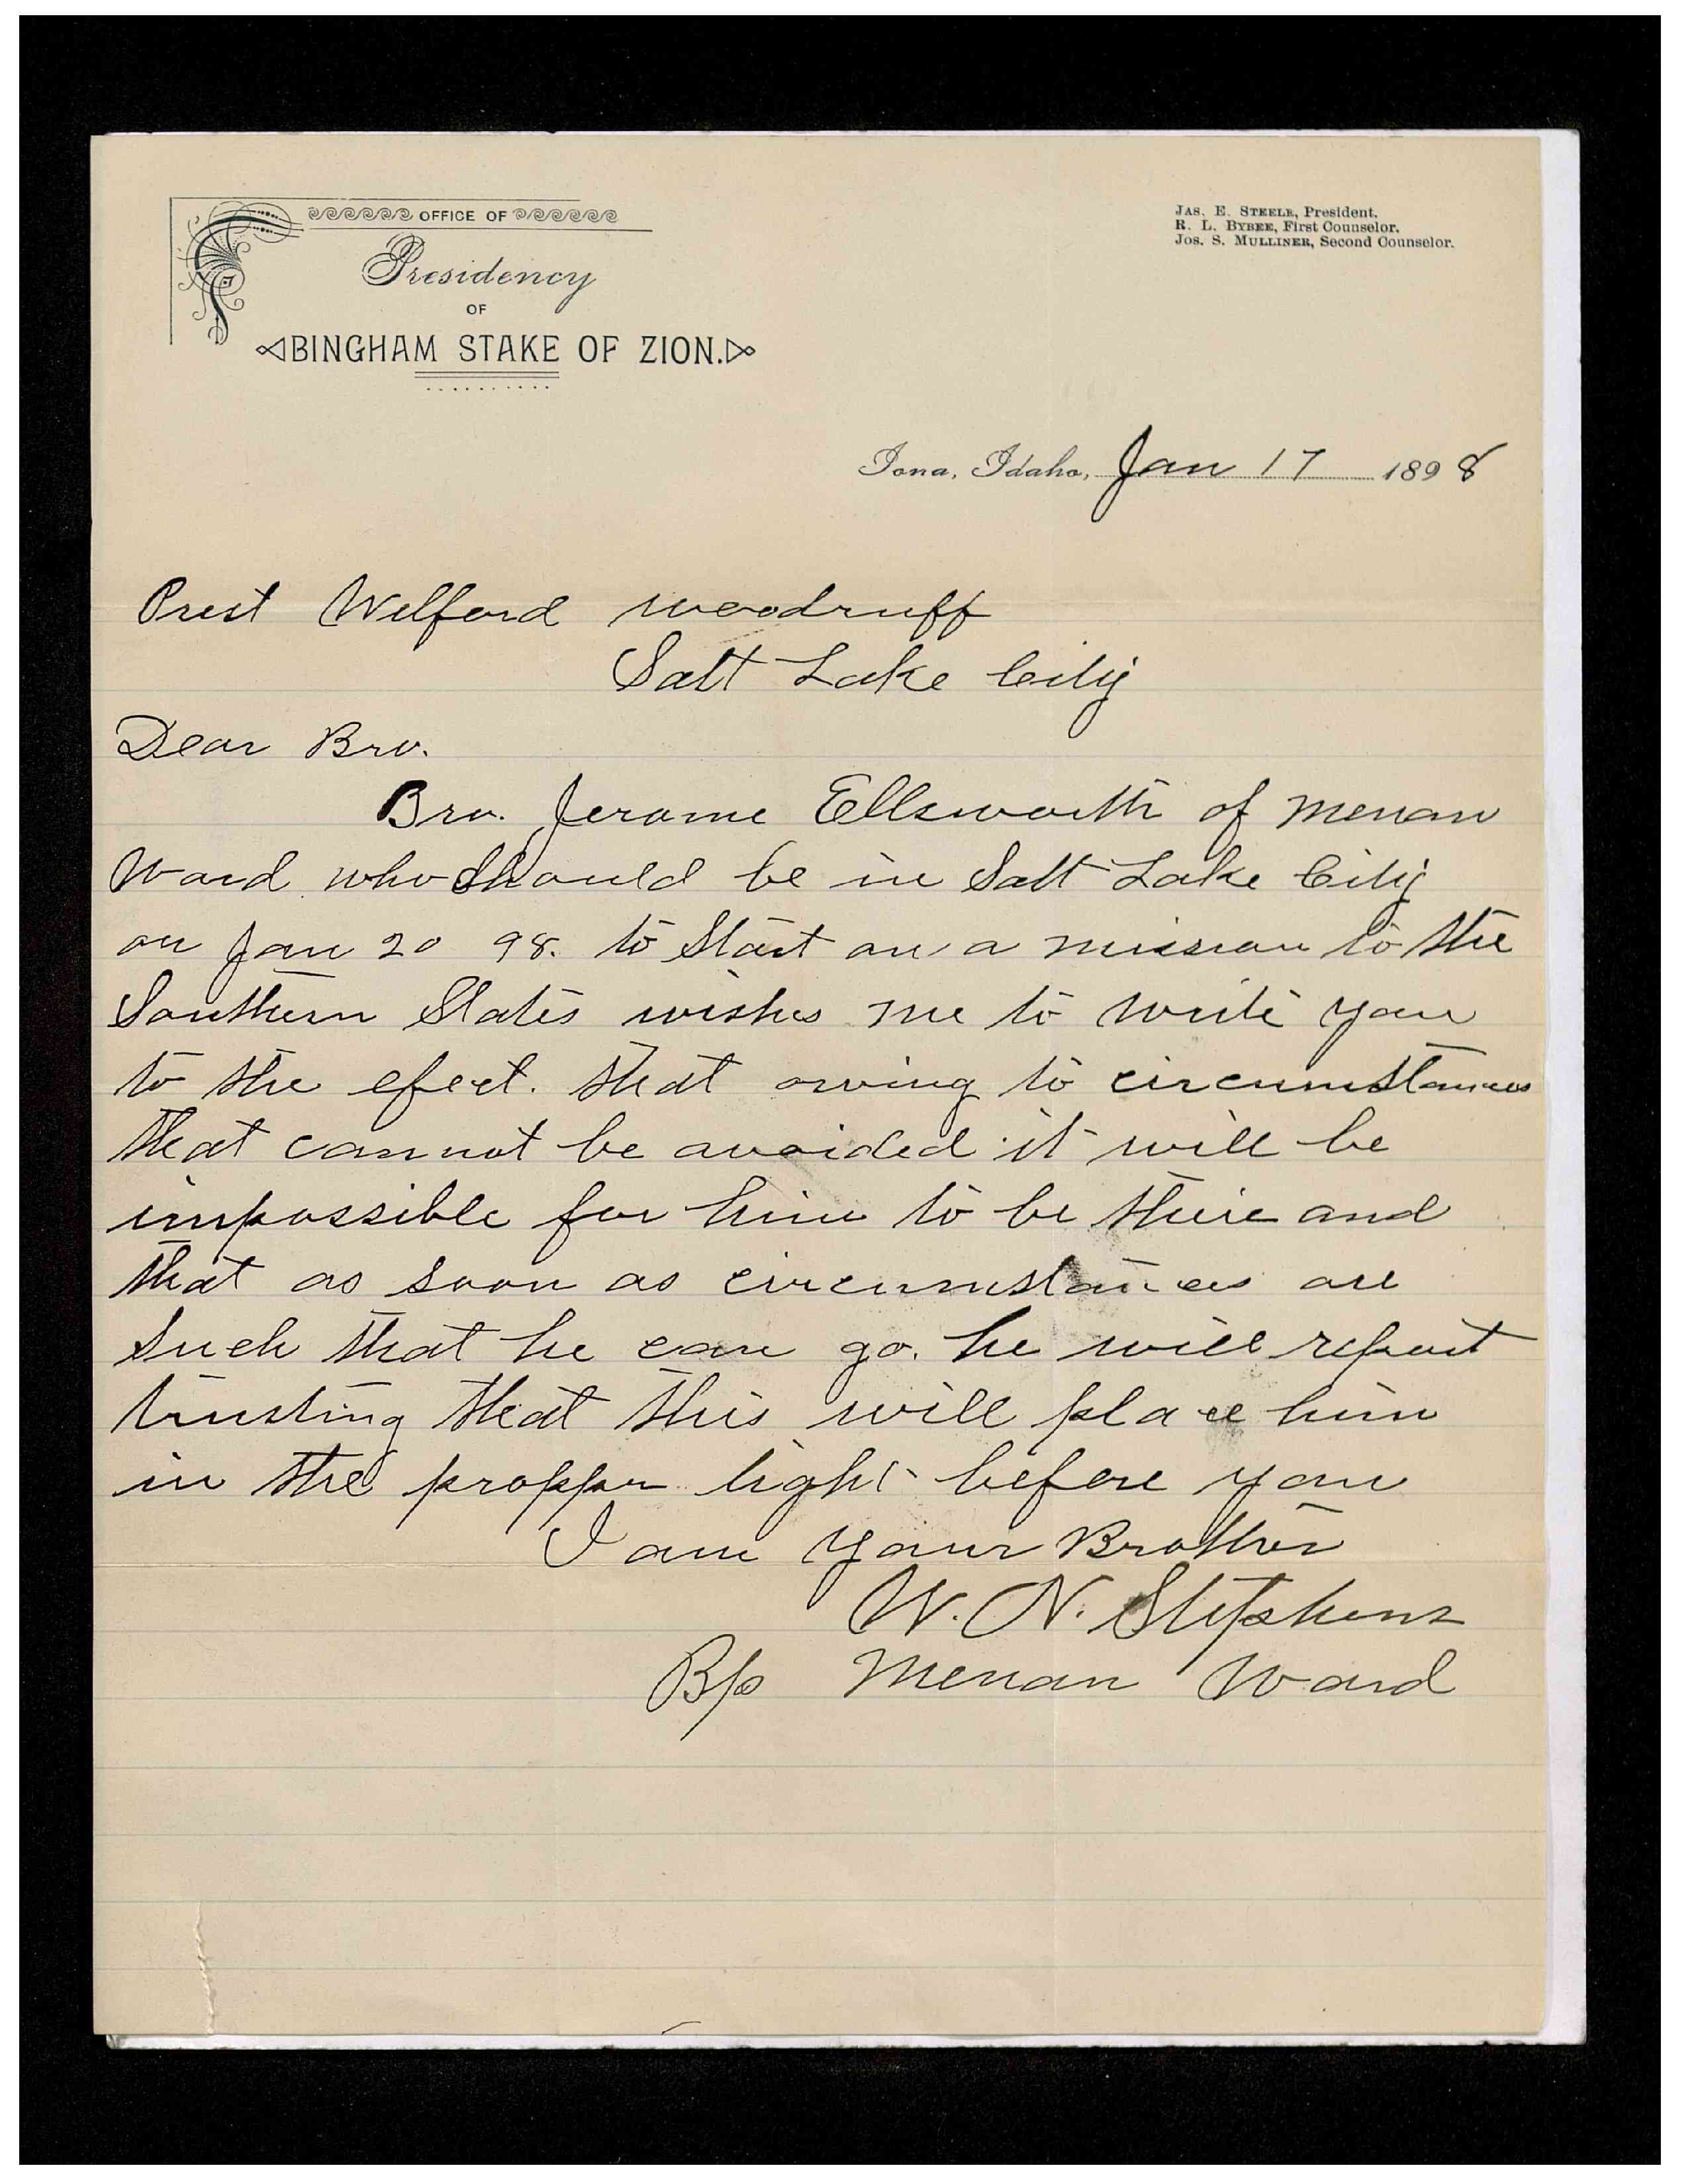 OFFICE OF
Presidency
OF
BINGHAM STAKE OF ZION.
JAS. E. STEELE, President.
R. L. BYBEE, First Counselor.
JOS. S. MULLINER, Second Counselor.
Iona, Idaho, Jan 17 1898
Prest Wilford woodruff
Salt Lake City
Dear Bro.
Bro. Jerome Ellsworth of Menan
Ward who Should be in Salt Lake City
on Jan 20 98. to Start on a mission to the
Southern States wishes me to write you
to the efect. that owing to circumstances
that cannot be avoided it will be
impossible for him to be there and
that as soon as circumstances are
such that he can go. he will report
trusting that this will place him
in the propper light before you
I am your Brother
W. N. Stephens
Bp Menan Ward